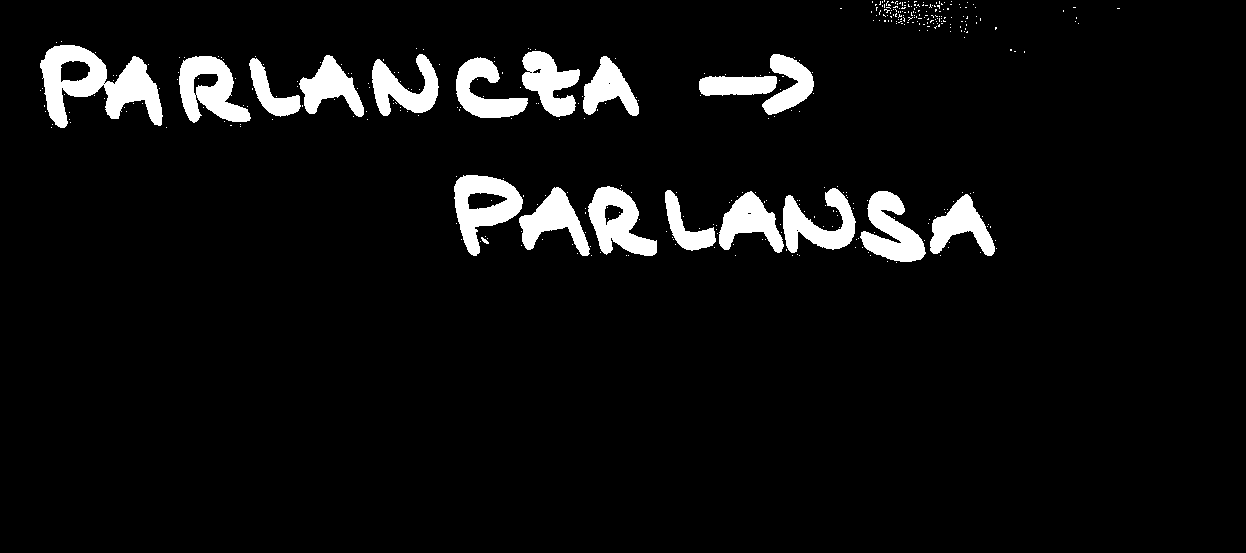 PARLANCZA →
PARLANSA